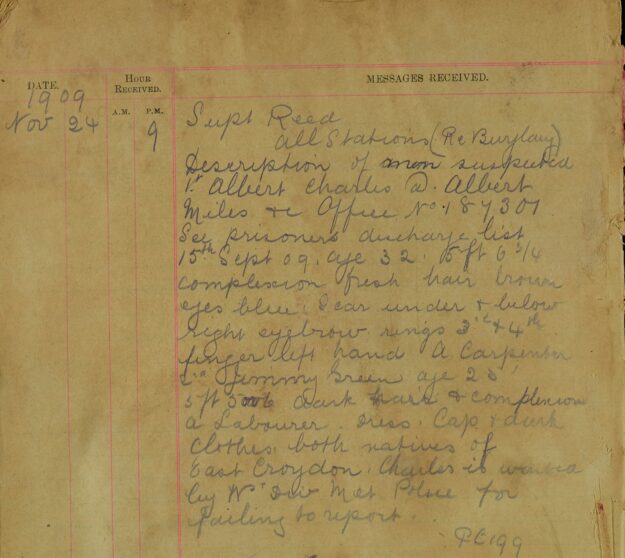 DATE.
HOUR
RECEIVED.
MESSAGES RECEIVED.
A.M. P.M.
1909
Nov 24
9
Supt Reed
All Stations (Re Burglary)
Description of men suspected
1st Albert Charles @ Albert
Miles &c Office No. 187301
See prisoners discharge list
15th Sept 09. age 32. 5ft 6 3/4
complexion fresh hair brown
eyes blue. Scar under & below
right eyebrow rings 3rd & 4th
finger left hand A Carpenter
2nd Jimmy Green age 28
5ft 5 or 6 dark hair & complexion
a Labourer. Dress. Cap & dark
clothes, both natives of
East Croydon. Charles is wanted
by W. Div Met Police for
failing to report.
PC 199